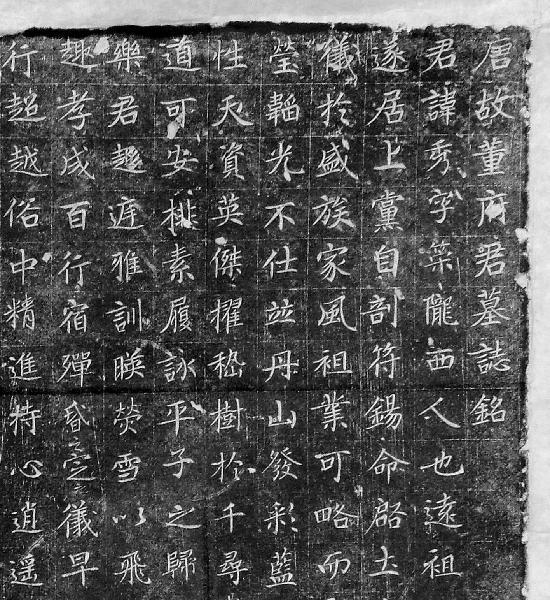 唐故董府君墓誌銘
君諱秀字策隴西人也遠祖
遂居上黨自剖符錫命啓土
儀於盛族家風祖業可略而
瑩韜光不仕並丹山發彩藍
性天資英傑擢嵇樹於千尋
道可安排素履詠平子之歸
樂君趍庭雅訓暎熒雪以飛
趣孝成百行宿殫昏定儀早
行超越俗中精進特心逍遥